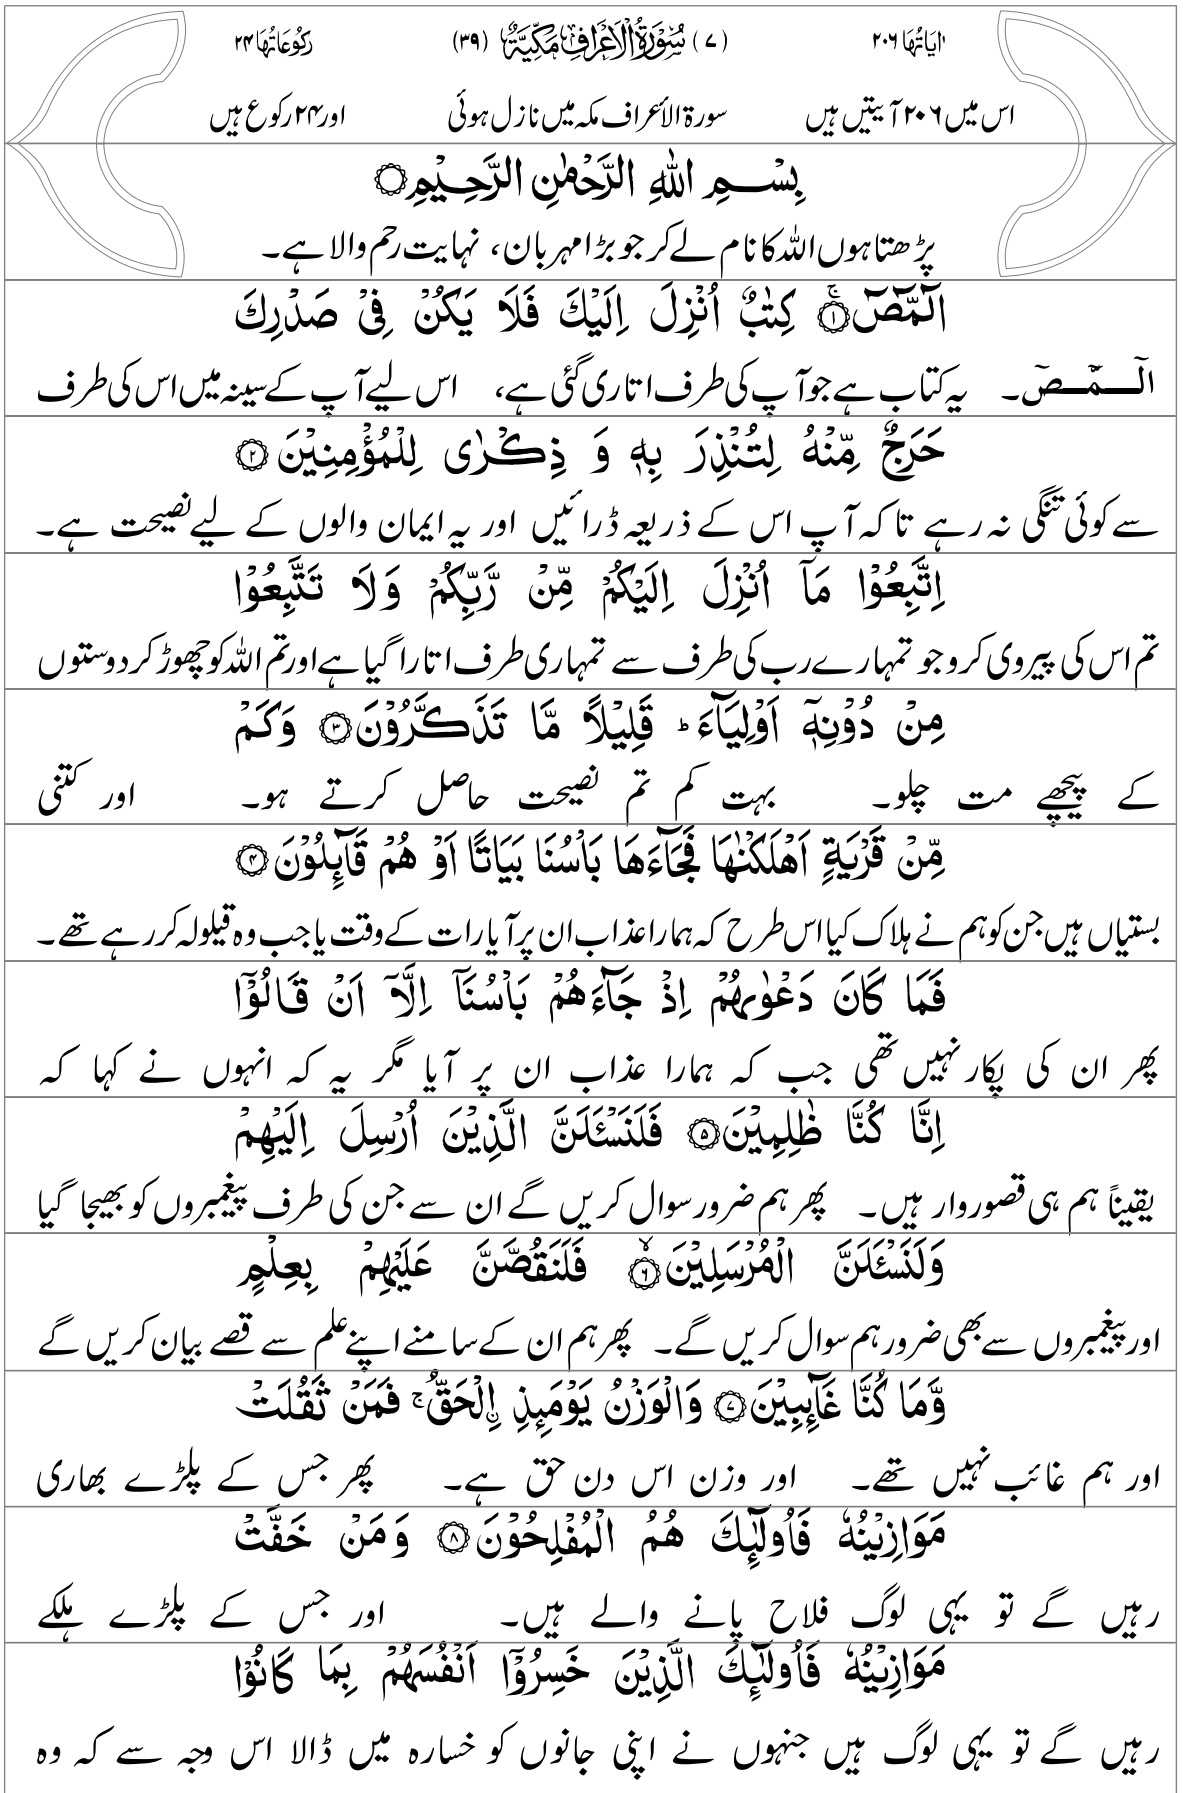 اٰیَاتُهَا ۲۰۶ (۷) سُوْرَةُ الْاَعْرَافِ مَكِّیَّةٌ (۳۹) رُكُوْعَاتُهَا ۲۴
اس میں ۲۰۶ آیتیں ہیں سورۃ الأعراف مکہ میں نازل ہوئی اور ۲۴ رکوع ہیں
بِسْــمِ اللّٰهِ الرَّحْمٰنِ الرَّحِیْمِ۝
پڑھتا ہوں اللہ کا نام لے کر جو بڑا مہربان، نہایت رحم والا ہے۔
الٓمّٓصٓ۝۱ۚ كِتٰبٌ اُنْزِلَ اِلَیْكَ فَلَا یَكُنْ فِیْ صَدْرِكَ
الٓــمّٓــصٓ۔ یہ کتاب ہے جو آپ کی طرف اتاری گئی ہے، اس لیے آپ کے سینہ میں اس کی طرف
حَرَجٌ مِّنْهُ لِتُنْذِرَ بِهٖ وَ ذِكْرٰی لِلْمُؤْمِنِیْنَ۝۲
سے کوئی تنگی نہ رہے تاکہ آپ اس کے ذریعہ ڈرائیں اور یہ ایمان والوں کے لیے نصیحت ہے۔
اِتَّبِعُوْا مَاۤ اُنْزِلَ اِلَیْكُمْ مِّنْ رَّبِّكُمْ وَلَا تَتَّبِعُوْا
تم اس کی پیروی کرو جو تمہارے رب کی طرف سے تمہاری طرف اتارا گیا ہے اور تم اللہ کو چھوڑ کر دوستوں
مِنْ دُوْنِهٖۤ اَوْلِیَآءَ ؕ قَلِیْلًا مَّا تَذَكَّرُوْنَ۝۳ وَكَمْ
کے پیچھے مت چلو۔ بہت کم تم نصیحت حاصل کرتے ہو۔ اور کتنی
مِّنْ قَرْیَةٍ اَهْلَكْنٰهَا فَجَآءَهَا بَاْسُنَا بَیَاتًا اَوْ هُمْ قَآئِلُوْنَ۝۴
بستیاں ہیں جن کو ہم نے ہلاک کیا اس طرح کہ ہمارا عذاب ان پر آیا رات کے وقت یا جب وہ قیلولہ کر رہے تھے۔
فَمَا كَانَ دَعْوٰىهُمْ اِذْ جَآءَهُمْ بَاْسُنَاۤ اِلَّاۤ اَنْ قَالُوْۤا
پھر ان کی پکار نہیں تھی جب کہ ہمارا عذاب ان پر آیا مگر یہ کہ انہوں نے کہا کہ
اِنَّا كُنَّا ظٰلِمِیْنَ۝۵ فَلَنَسْـَٔلَنَّ الَّذِیْنَ اُرْسِلَ اِلَیْهِمْ
یقیناً ہم ہی قصوروار ہیں۔ پھر ہم ضرور سوال کریں گے ان سے جن کی طرف پیغمبروں کو بھیجا گیا
وَلَنَسْـَٔلَنَّ الْمُرْسَلِیْنَ۝۶ۙ فَلَنَقُصَّنَّ عَلَیْهِمْ بِعِلْمٍ
اور پیغمبروں سے بھی ضرور ہم سوال کریں گے۔ پھر ہم ان کے سامنے اپنے علم سے قصے بیان کریں گے
وَّمَا كُنَّا غَآئِبِیْنَ۝۷ وَالْوَزْنُ یَوْمَئِذِ اِ۟لْحَقُّ ۚ فَمَنْ ثَقُلَتْ
اور ہم غائب نہیں تھے۔ اور وزن اس دن حق ہے۔ پھر جس کے پلڑے بھاری
مَوَازِیْنُهٗ فَاُولٰٓئِكَ هُمُ الْمُفْلِحُوْنَ۝۸ وَمَنْ خَفَّتْ
رہیں گے تو یہی لوگ فلاح پانے والے ہیں۔ اور جس کے پلڑے ہلکے
مَوَازِیْنُهٗ فَاُولٰٓئِكَ الَّذِیْنَ خَسِرُوْۤا اَنْفُسَهُمْ بِمَا كَانُوْا
رہیں گے تو یہی لوگ ہیں جنہوں نے اپنی جانوں کو خسارہ میں ڈالا اس وجہ سے کہ وہ